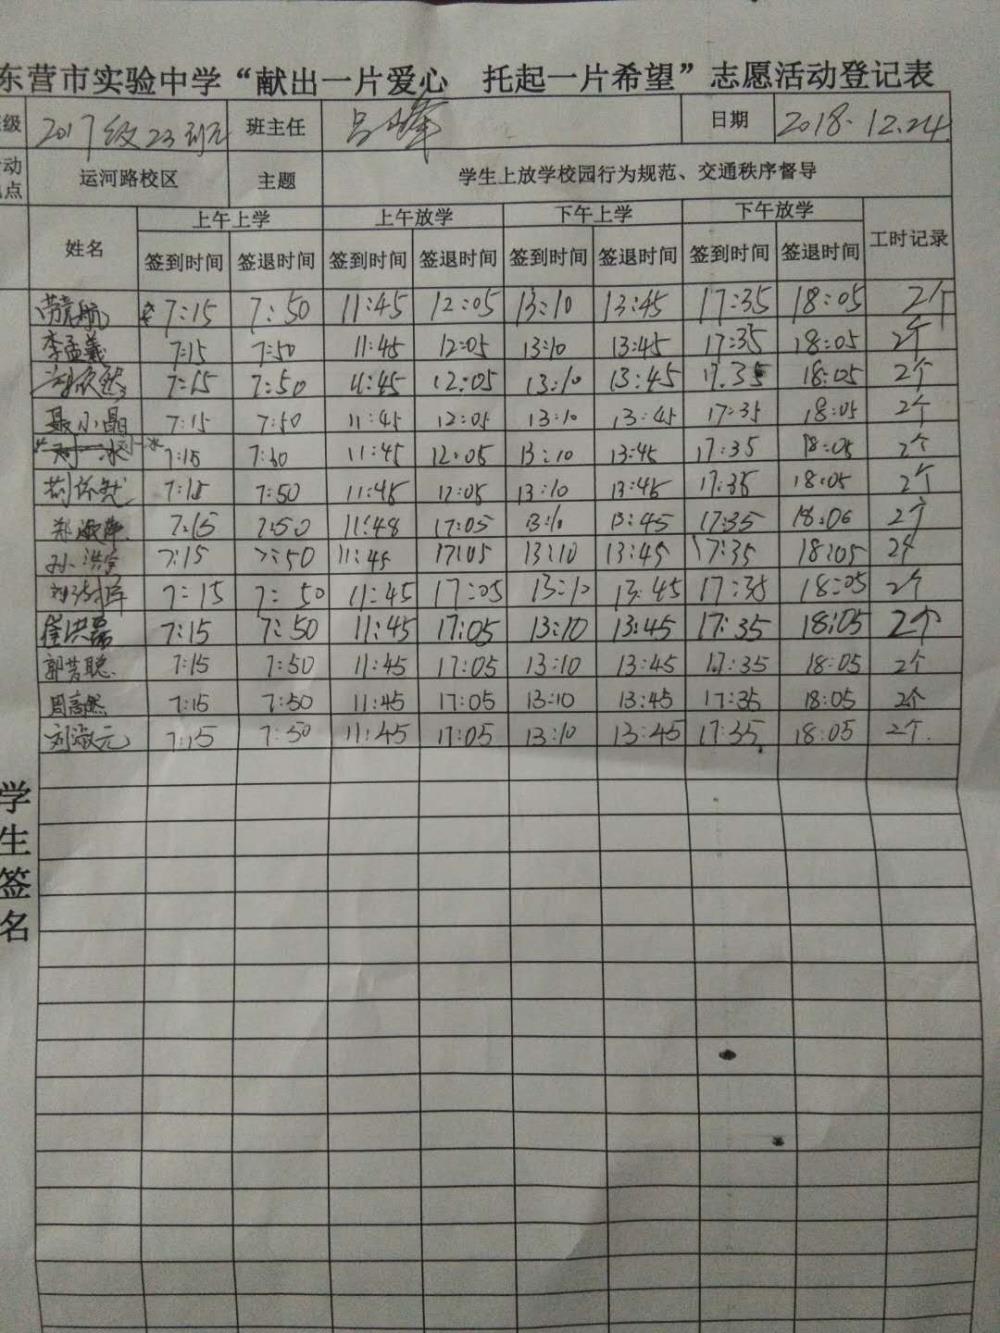 东营市实验中学“献出一片爱心 托起一片希望”志愿活动登记表
级 2017级23班 班主任 吕峰 日期 2018.12.24
动点 运河路校区 主题 学生上放学校园行为规范、交通秩序督导
姓名 上午上学 上午放学 下午上学 下午放学 工时记录
签到时间 签退时间 签到时间 签退时间 签到时间 签退时间 签到时间 签退时间
7:15 7:50 11:45 12:05 13:10 13:45 17:35 18:05 2个
李孟羲 7:15 7:50 11:45 12:05 13:10 13:45 17:35 18:05 2个
7:15 7:50 11:45 12:05 13:10 13:45 17.35 18:05 2个
聂小晶 7:15 7:50 11:45 12:05 13:10 13:45 17:35 18:05 2个
7:15 7:50 11:45 12:05 13:10 13:45 17:35 18:05 2个
7:15 7:50 11:45 12:05 13:10 13:45 17:35 18:05 2个
郑 7:15 7:50 11:48 17:05 13:10 13:45 17:35 18:06 2个
孙洪宇 7:15 7:50 11:45 17:05 13:10 13:45 17:35 18:05 2个
刘 7:15 7:50 11:45 17:05 13:10 13:45 17:35 18:05 2个
崔洪磊 7:15 7:50 11:45 17:05 13:10 13:45 17:35 18:05 2个
郭芳聪 7:15 7:50 11:45 17:05 13:10 13:45 17:35 18:05 2个
周高然 7:15 7:50 11:45 17:05 13:10 13:45 17:35 18:05 2个
刘淑元 7:15 7:50 11:45 17:05 13:10 13:45 17:35 18:05 2个
学生签名